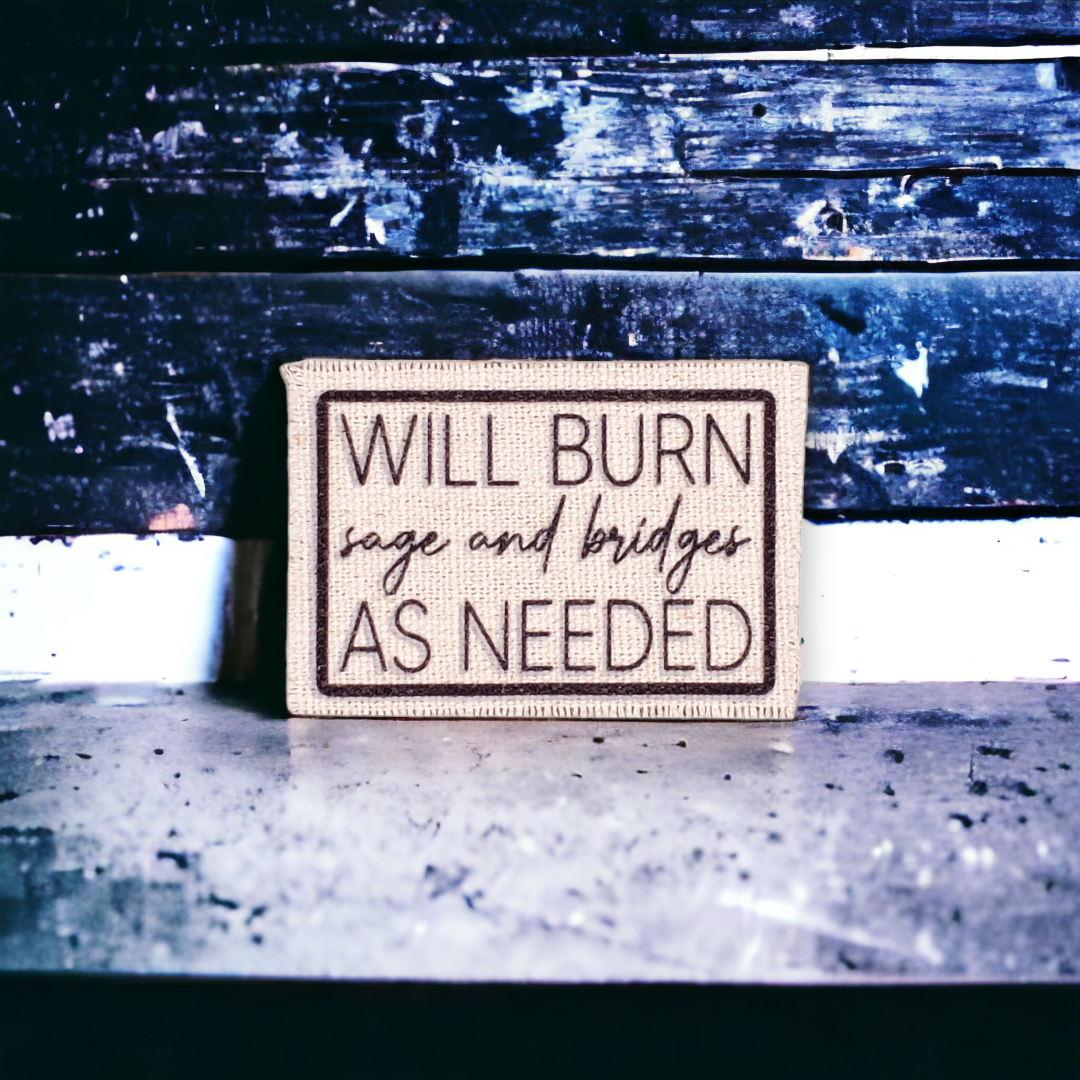 WILL BURN
sage and bridges
AS NEEDED